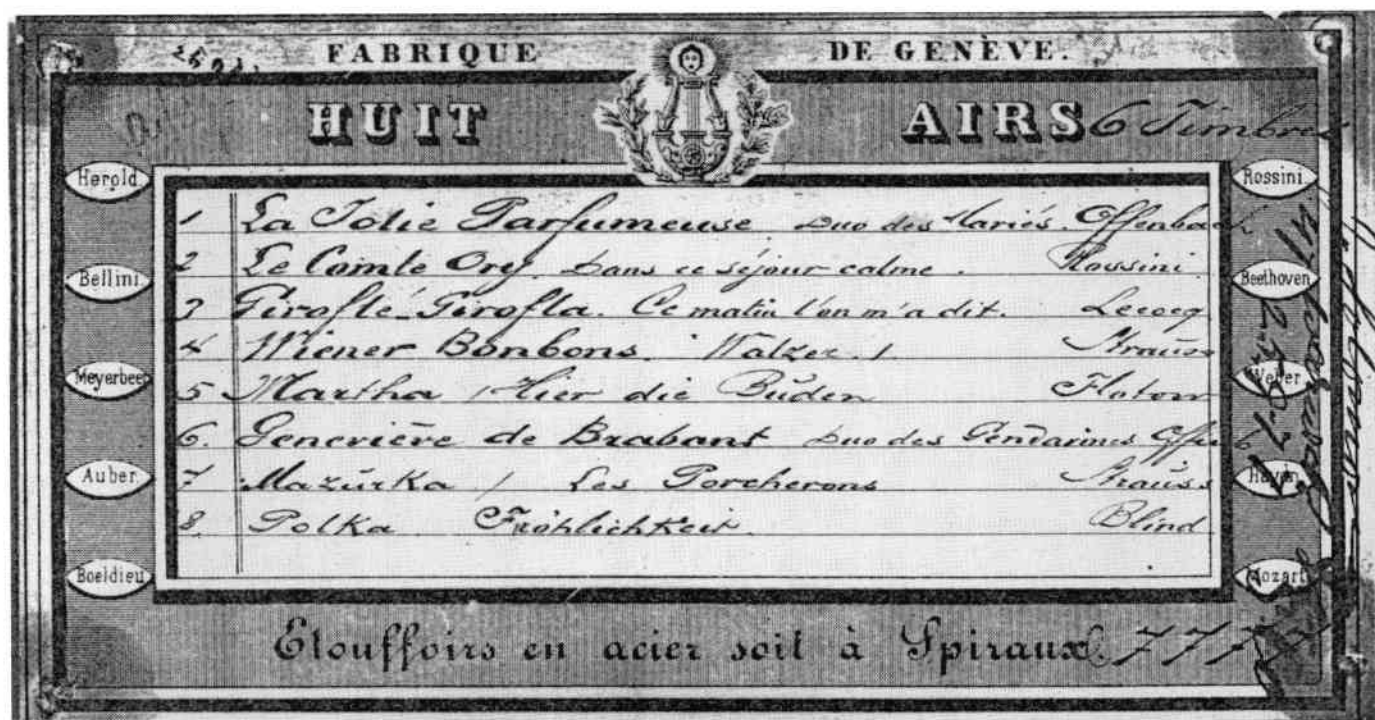 FABRIQUE DE GENÈVE.
HUIT AIRS 6 Timbres
Herold
Bellini
Meyerbeer
Auber
Boeldieu
1 La Jolie Parfumeuse Duo des Mariés. Offenbach
2 Le Comte Ory. Dans ce séjour calme. Rossini
3 Girofle-Girofla. Ce matin l'on m'a dit. Lecocq
4 Wiener Bonbons. Walzer / Strauss
5 Martha / Hier die Buden Flotow
6. Geneviève de Brabant Duo des Gendarmes Offenb
7 Mazurka / Les Porcherons Strauss
8 Polka Fröhlichkeit Blind
Rossini
Beethoven
Weber
Haydn
Mozart
Etouffoirs en acier soit à Spiraux. 777